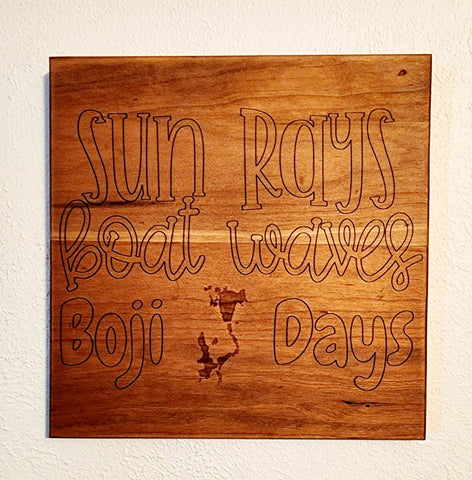 sun Rays
boat waves
Boji Days